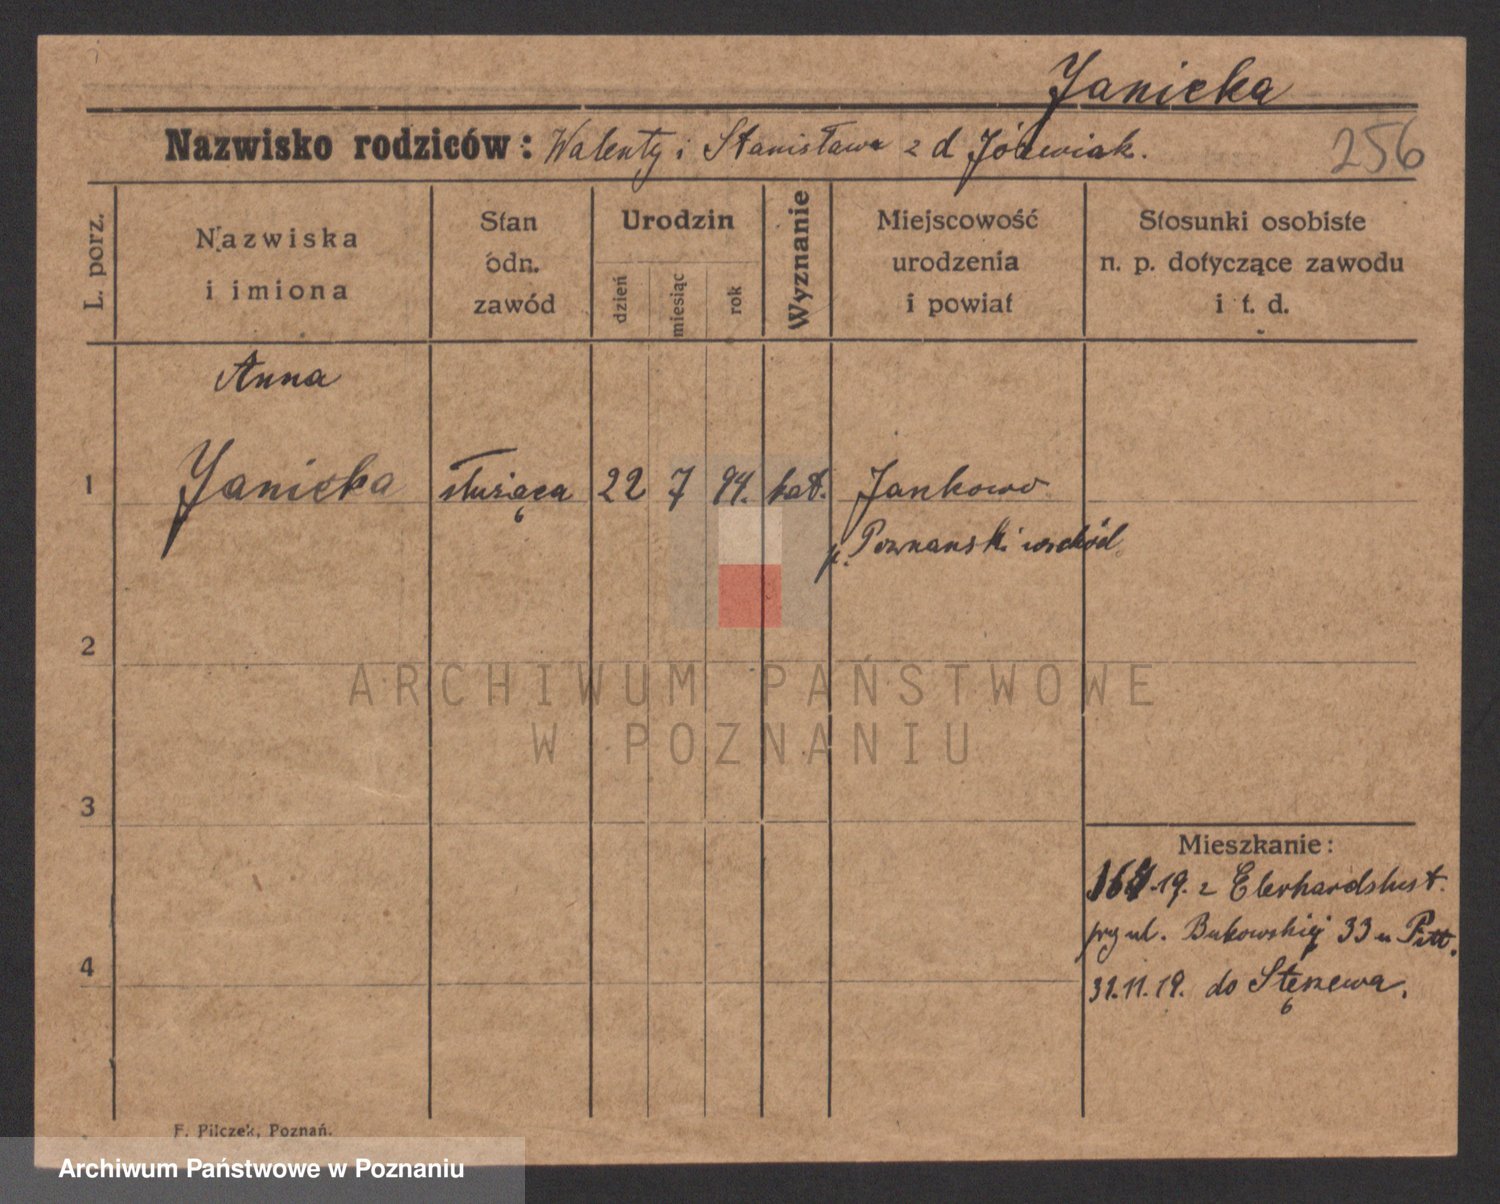 Janicka
Nazwisko rodziców: Walenty i Stanisława z d Jóźwiak.
256
L. porz.
Nazwiska
i imiona
Stan
odn.
zawód
Urodzin
dzień
miesiąc
rok
Wyznanie
Miejscowość
urodzenia
i powiat
Stosunki osobiste
n. p. dotyczące zawodu
i t. d.
Anna
1 Janicka służąca 22 7 94. kat. Jankowo
p. Poznański wschód
2
ARCHIWUM PAŃSTWOWE
W POZNANIU
3
Mieszkanie:
19. z Eberhardslust.
przy ul. Bukowskiej 33 u Pitt.
4
31.11.19. do Stęszewa.
F. Pilczek, Poznań.
Archiwum Państwowe w Poznaniu